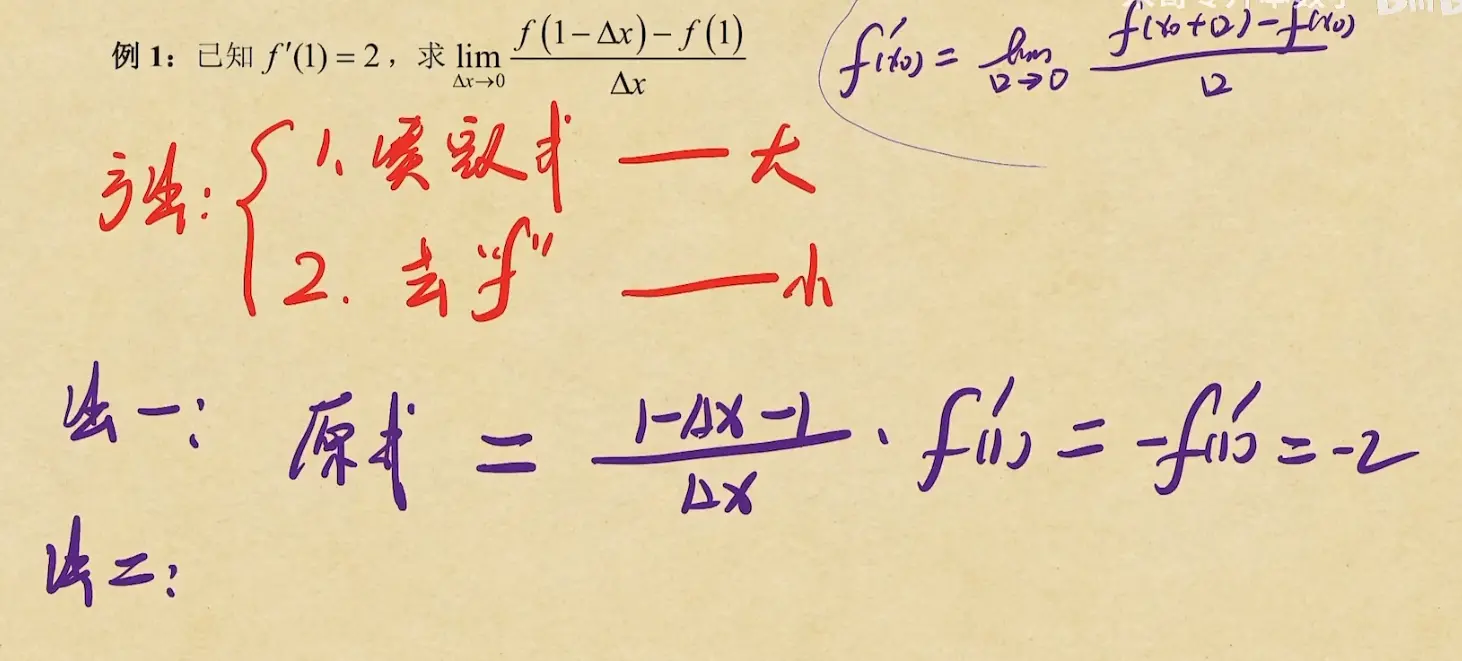 例 1：已知 f′(1) = 2，求 lim_{Δx→0} \frac{f(1−Δx)−f(1)}{Δx}
f′(x₀) = lim_{□→0} \frac{f(x₀+□)−f(x₀)}{□}
方法：
1、凑导数式 —— 大
2. 去“f” —— 小
法一： 原式 = \frac{1−Δx−1}{Δx} · f′(1) = −f′(1) = −2
法二：